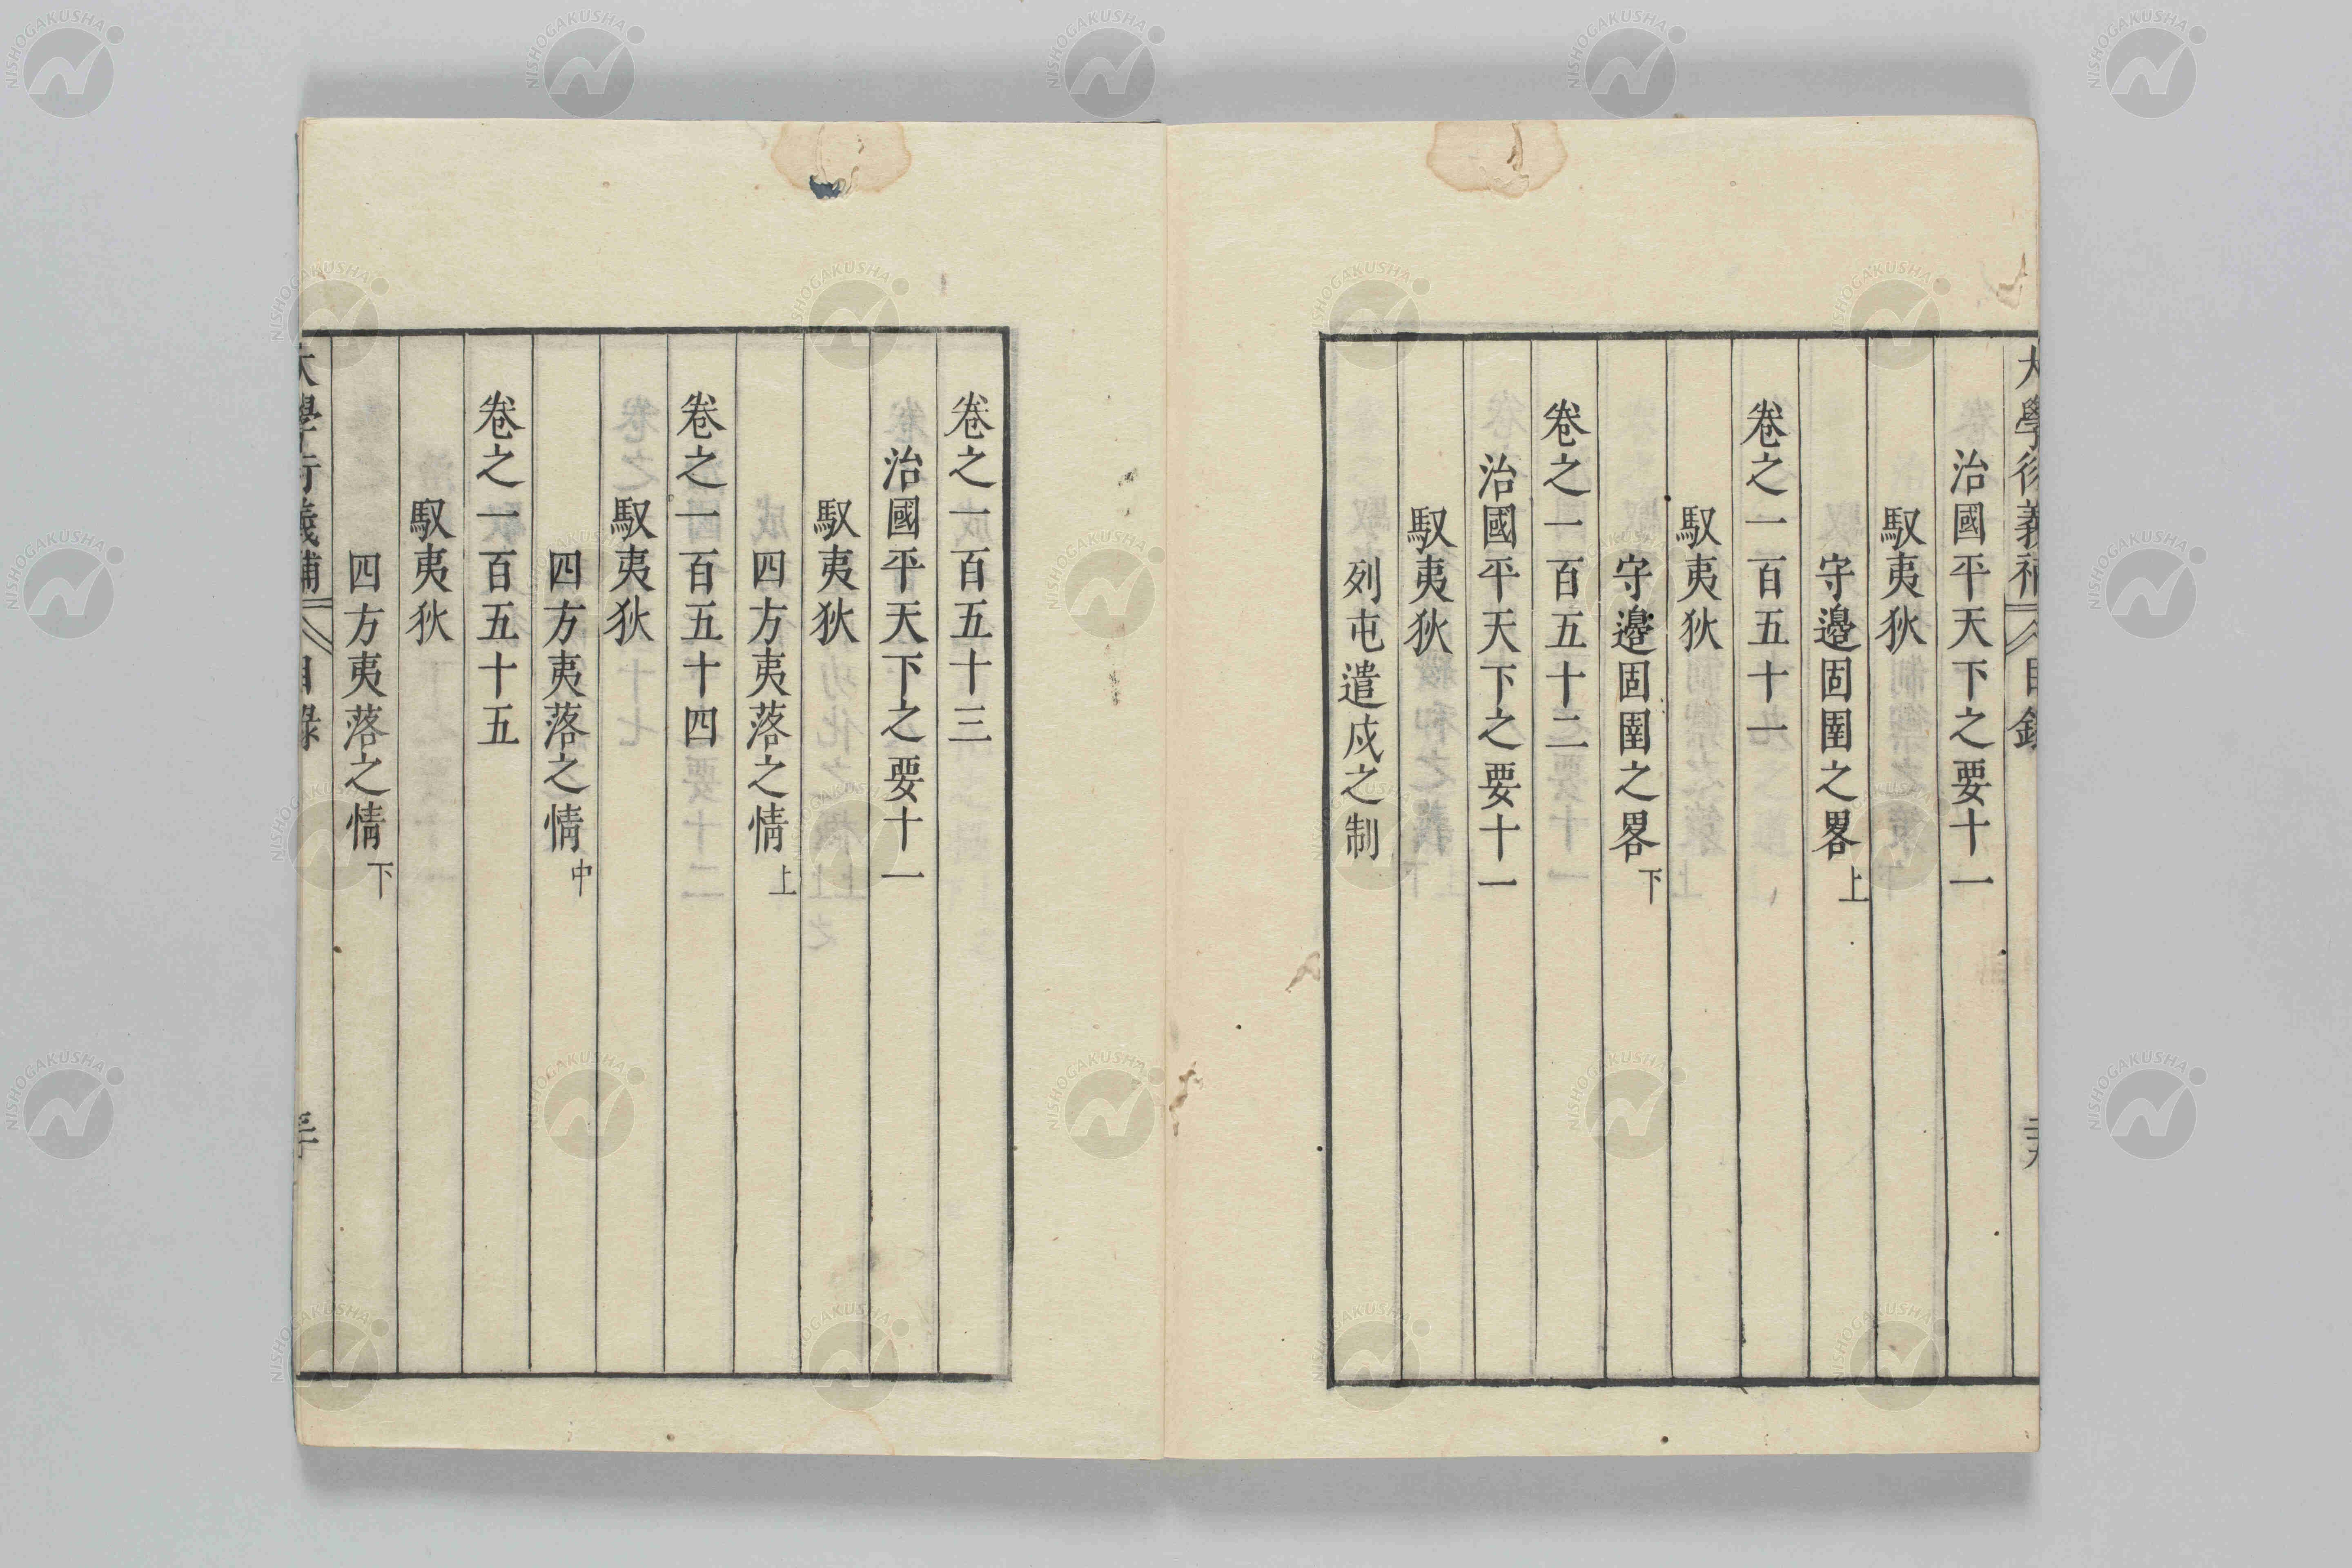 大學衍義補 目錄 二十九
治國平天下之要十一
馭夷狄
守邊固圉之畧上
卷之一百五十一
馭夷狄
守邊固圉之畧下
卷之一百五十二
治國平天下之要十一
馭夷狄
列屯遣戍之制
卷之一百五十三
治國平天下之要十一
馭夷狄
四方夷落之情上
卷之一百五十四
馭夷狄
四方夷落之情中
卷之一百五十五
馭夷狄
四方夷落之情下
大學衍義補 目錄 三十
NISHOGAKUSHA